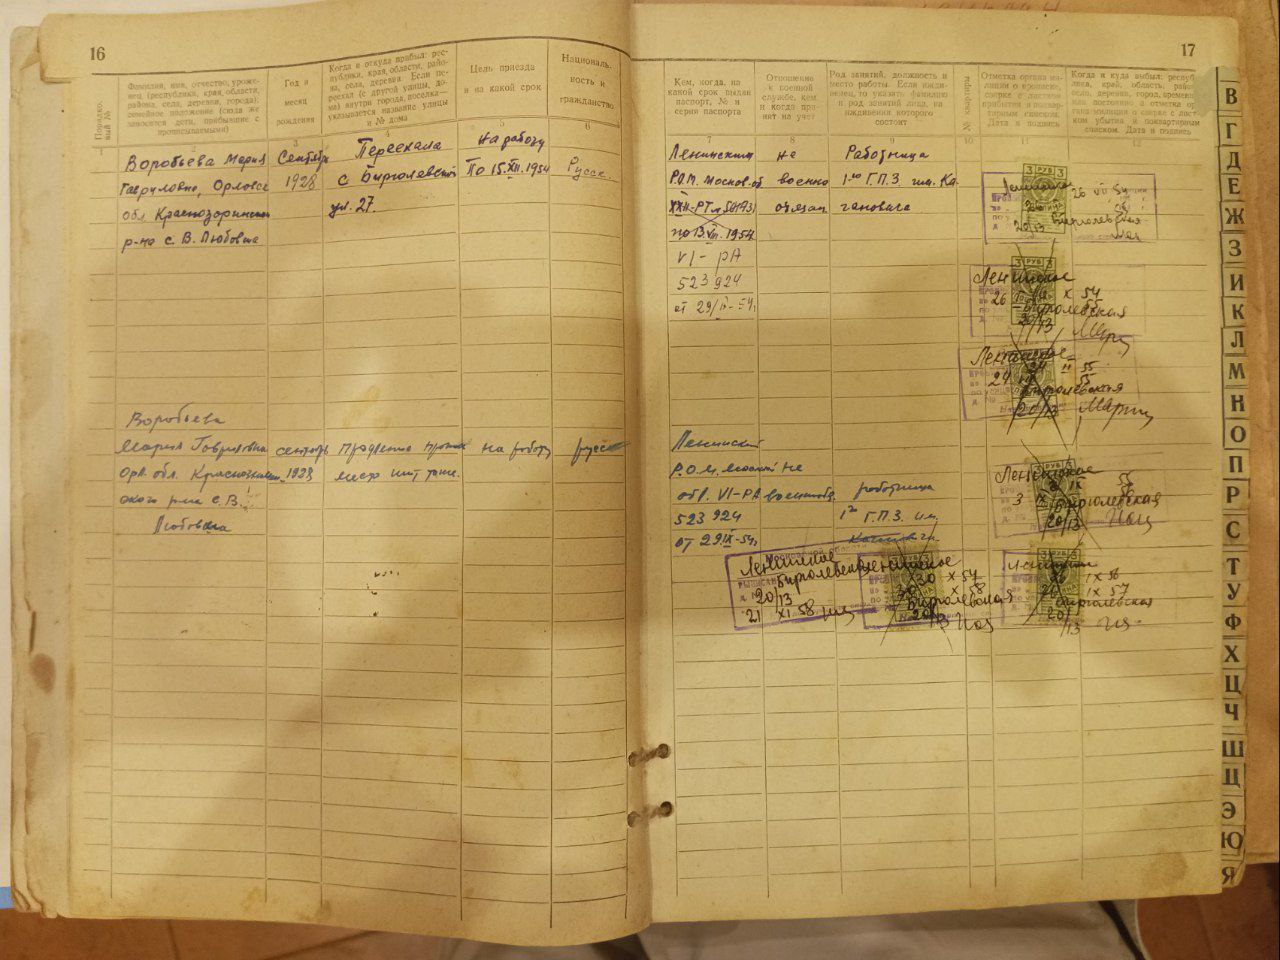 16
Порядко-вый №
Фамилия, имя, отчество, уроже-
нец (республики, края, области,
района, села, деревни, города);
семейное положение (сюда же
заносятся дети, прибывшие с
прописываемыми)
Год и
месяц
рождения
Когда и откуда прибыл: рес-
публики, края, области, райо-
на, села, деревни. Если пе-
реехал (с другой улицы, до-
ма) внутри города, поселка—
указывается название улицы
и № дома
Цель приезда
и на какой срок
Националь-
ность и
гражданство
1
2
3
4
5
6
Воробьева Мария
Гавриловна, Орловск
обл Краснозоринск
р-на с. В. Любовша
Сентябрь
1928
Переехала
с Бирюлевской
ул. 27.
На работу
По 15.XII.1954
Русск.
Воробьева
Мария Гавриловна
Орл. обл. Краснозорин
ского р-на с. В.
Любовша
сентябрь
1928
на работу
русс
17
Кем, когда, на
какой срок выдан
паспорт, № и
серия паспорта
Отношение
к военной
службе, кем
и когда при-
нят на учет
Род занятий, должность и
место работы. Если ижди-
венец, то указать фамилию
и род занятий лица, на
иждивении которого
состоит
№ квартиры
Отметка органа ми-
лиции о прописке,
сверке с листком
прибытия и поквар-
тирным списком.
Дата и подпись
Когда и куда выбыл: республ
лики, край, область, район
село, деревня, город, временно
или постоянно и отметка ор-
гана милиции о сверке с лист-
ком убытия и поквартирным
списком. Дата и подпись
7
8
9
10
11
12
Ленинским
Р.О.М. Москов. об
по 13.VIII.1954
VI-РА
523924
от 29/IX-54г
не
военно
обязан
Работница
1-го Г.П.З. им. Ка-
гановича
3 РУБ 3
Ленинское
26 VII 54
Бирюлевская
20/13
3 РУБ 3
Ленинское
26 X 54
55
Бирюлевская
20/13
Ленинское
24 II 55
55
Бирюлевская
20/13
Ленинский
Р.О.М. Моск
обл. VI-РА
523924
от 29.IX-54г
не
военнооб.
работница
1го Г.П.З. им.
3 РУБ 3
Ленинское
3 IX 55
56
Бирюлевская
20/13
Московской области
Ленинское
ВЫПИСАН
Бирюлевская
20/13
21 XI 58
Ленинское
30 X 57
30 X 58
Бирюлевская
20/13
3 РУБ 3
Ленинское
26 IX 56
26 IX 57
Бирюлевская
20/13
В
Г
Д
Е
Ж
З
И
К
Л
М
Н
О
П
Р
С
Т
У
Ф
Х
Ц
Ч
Ш
Щ
Э
Ю
Я